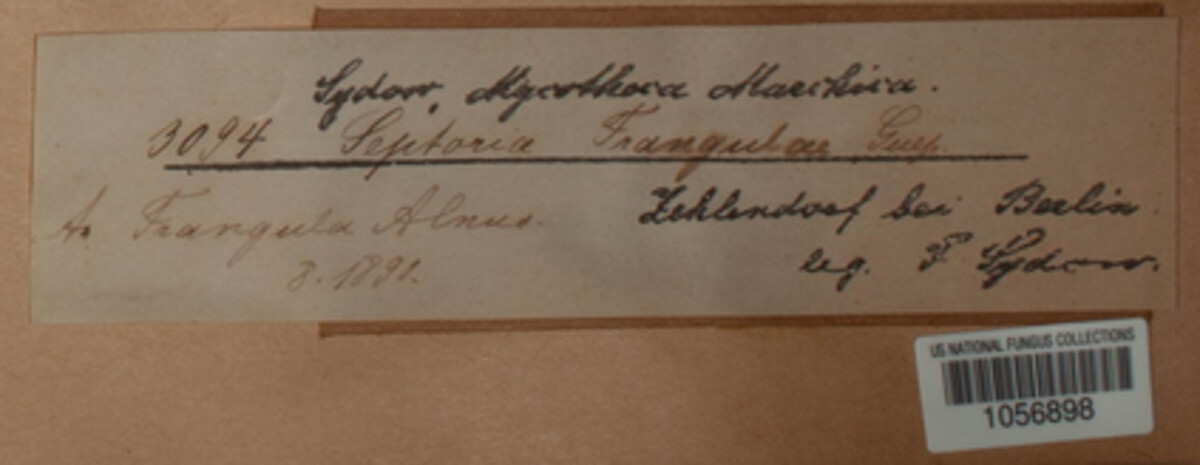 Sydow, Mycotheca Marchica.
3094 Septoria Frangulae Guep.
A. Frangula Alnus.
Zehlendorf bei Berlin
8. 1890.
leg. P. Sydow.
US NATIONAL FUNGUS COLLECTIONS
1056898